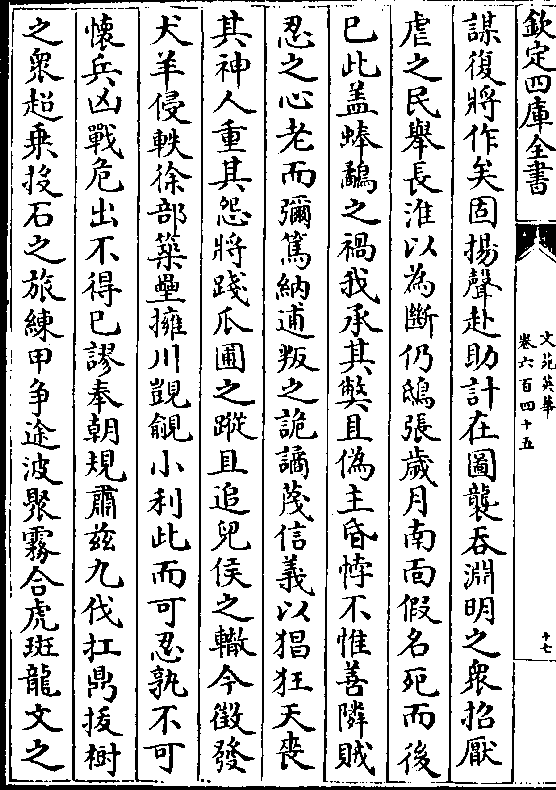 欽定四庫全書
文苑英華
卷六百四十五
十七
謀復將作矣固揚聲赴助計在圖襲吞淵明之衆招厭
虐之民舉長淮以為斷仍鴟張歲月南靣假名死而後
已此盖蜯鷸之禍我承其弊且偽主昏悖不惟善隣賊
忍之心老而彌篤納逋叛之詭譎蔑信義以猖狂天喪
其神人重其怨將踐瓜圃之蹤且追兒侯之轍今徵發
犬羊侵軼徐部築壘擁川覬覦小利此而可忍孰不可
懷兵凶戰危出不得已謬奉朝規肅兹九伐扛鼎拔樹
之衆超乗投石之旅練甲争途波聚霧合虎斑龍文之